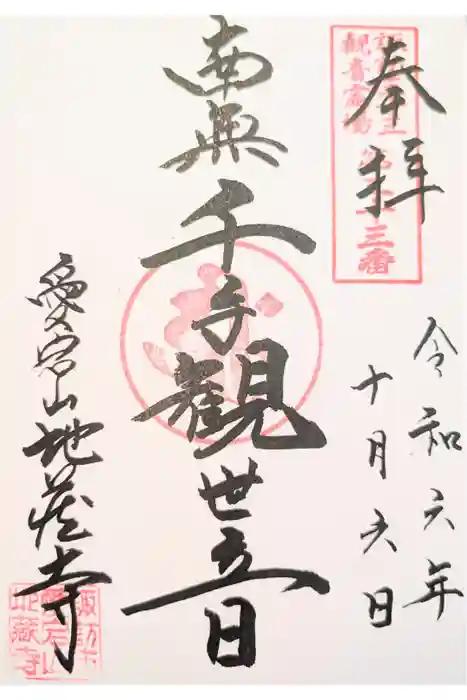 奉拝
令和六年
十月六日
観音霊場
三番
南無千手観世音
愛宕山地蔵寺
諏訪
地蔵寺